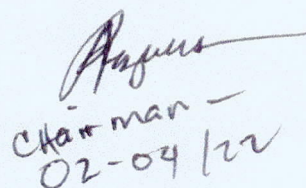 Chairman -
02-04/22